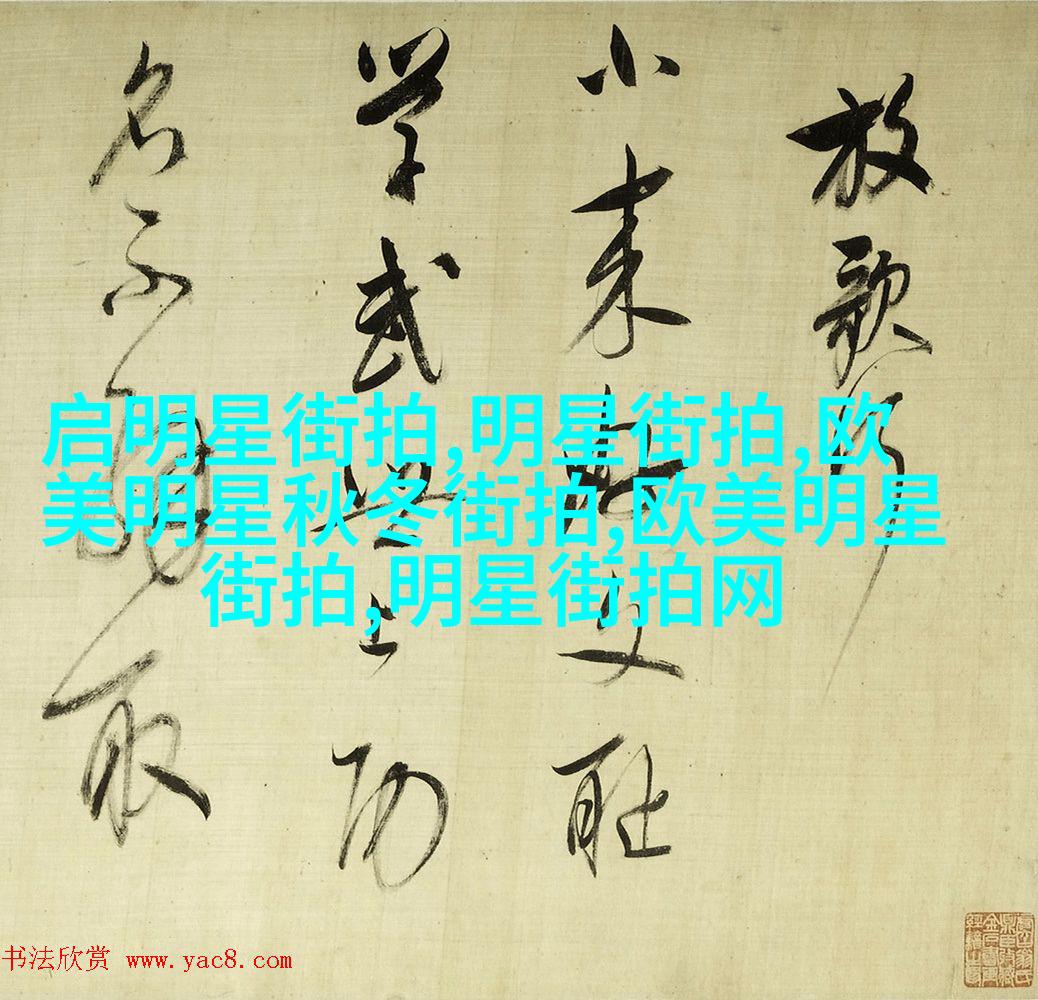 放歌行
小来好文耻
学武世上功
名不解取
启明星街拍,明星街拍,欧
美明星秋冬街拍,欧美明星
街拍,明星街拍网
书法欣赏 www.yac8.com